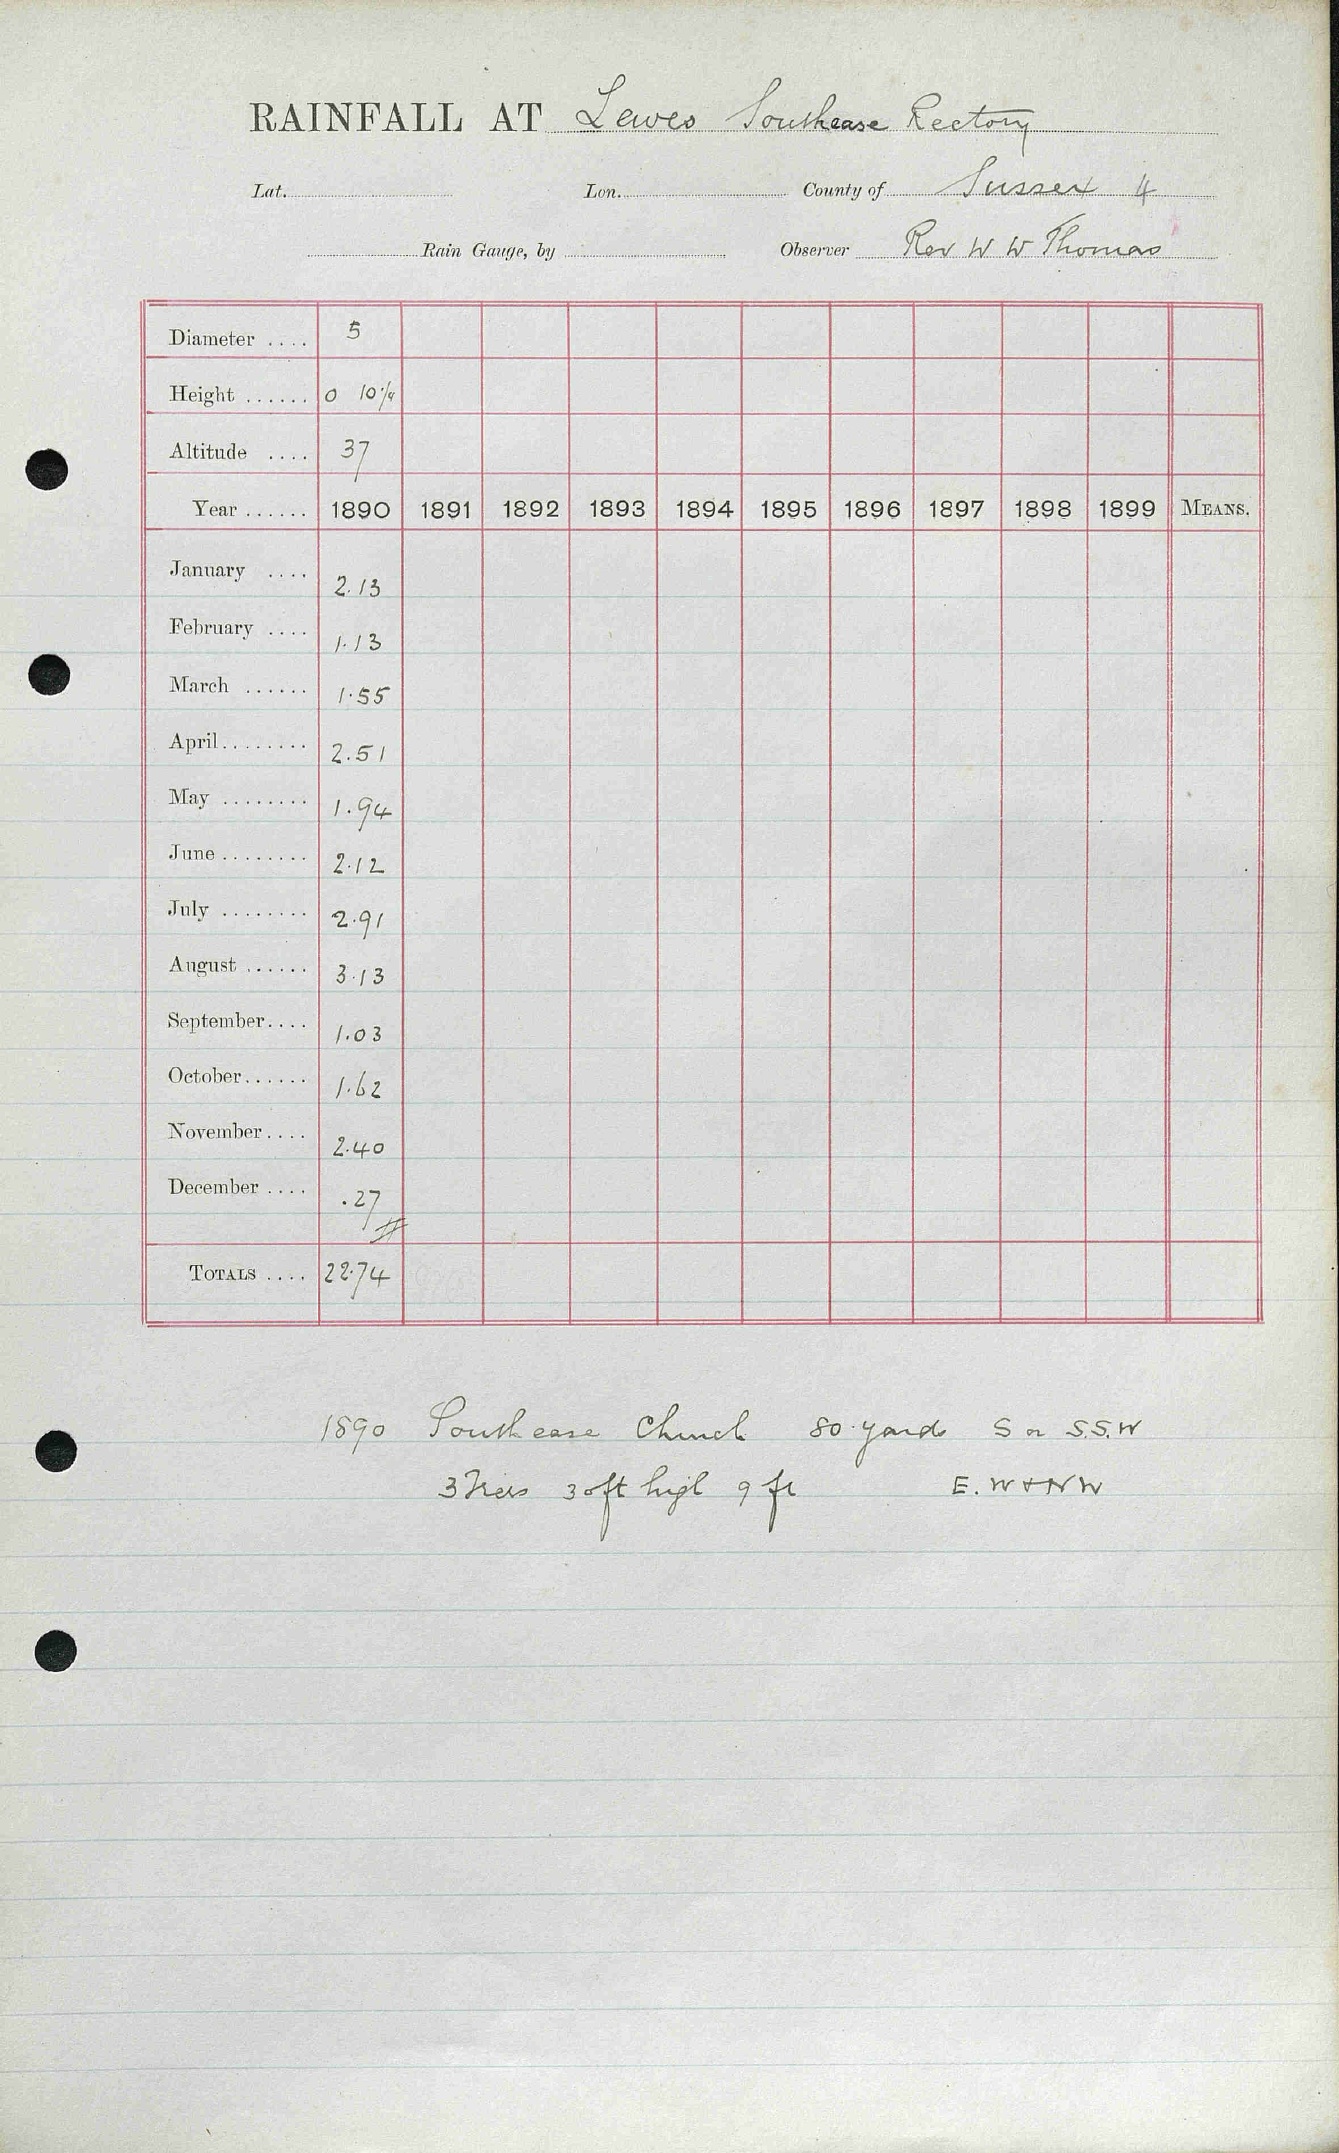 RAINFALL AT Lewes Southease Rectory
Lat. Lon. County of Sussex 4
Rain Gauge, by Observer Rev W W Thomas
Diameter .... 5
Height ...... 0 10 1/4
Altitude .... 37
Year ...... 1890 1891 1892 1893 1894 1895 1896 1897 1898 1899 MEANS.
January .... 2.13
February .... 1.13
March ...... 1.55
April ........ 2.51
May ........ 1.94
June ........ 2.12
July ........ 2.91
August ...... 3.13
September .... 1.03
October ...... 1.62
November .... 2.40
December .... .27
TOTALS .... 22.74
1890 Southease Church 80 yards S or S.S.W
3 trees 30ft high 9 ft E. W + NW